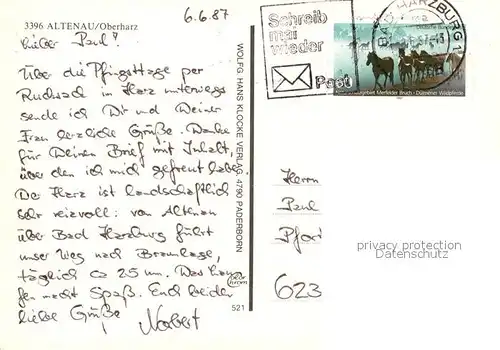 6.6.87
3396 ALTENAU/Oberharz
Lieber Paul!
Über die Pfingsttage per
Rucksack im Harz unterwegs
sende ich Dir und Deiner
Frau herzliche Grüße. Danke
für Deinen Brief mit Inhalt,
über den ich mich gefreut habe.
Der Harz ist landschaftlich
sehr reizvoll: von Altenau
über Bad Harzburg führt
unser Weg nach Braunlage,
täglich ca 25 km. Das Lau-
fen macht Spaß. Euch beiden
liebe Grüße
Norbert
WOLFG. HANS KLOCKE VERLAG 4790 PADERBORN
521
Schreib
mal
wieder
Post
BAD HARZBURG 1
Merfelder Bruch · Dülmener Wildpferde
Herrn
Paul
623
privacy protection
Datenschutz